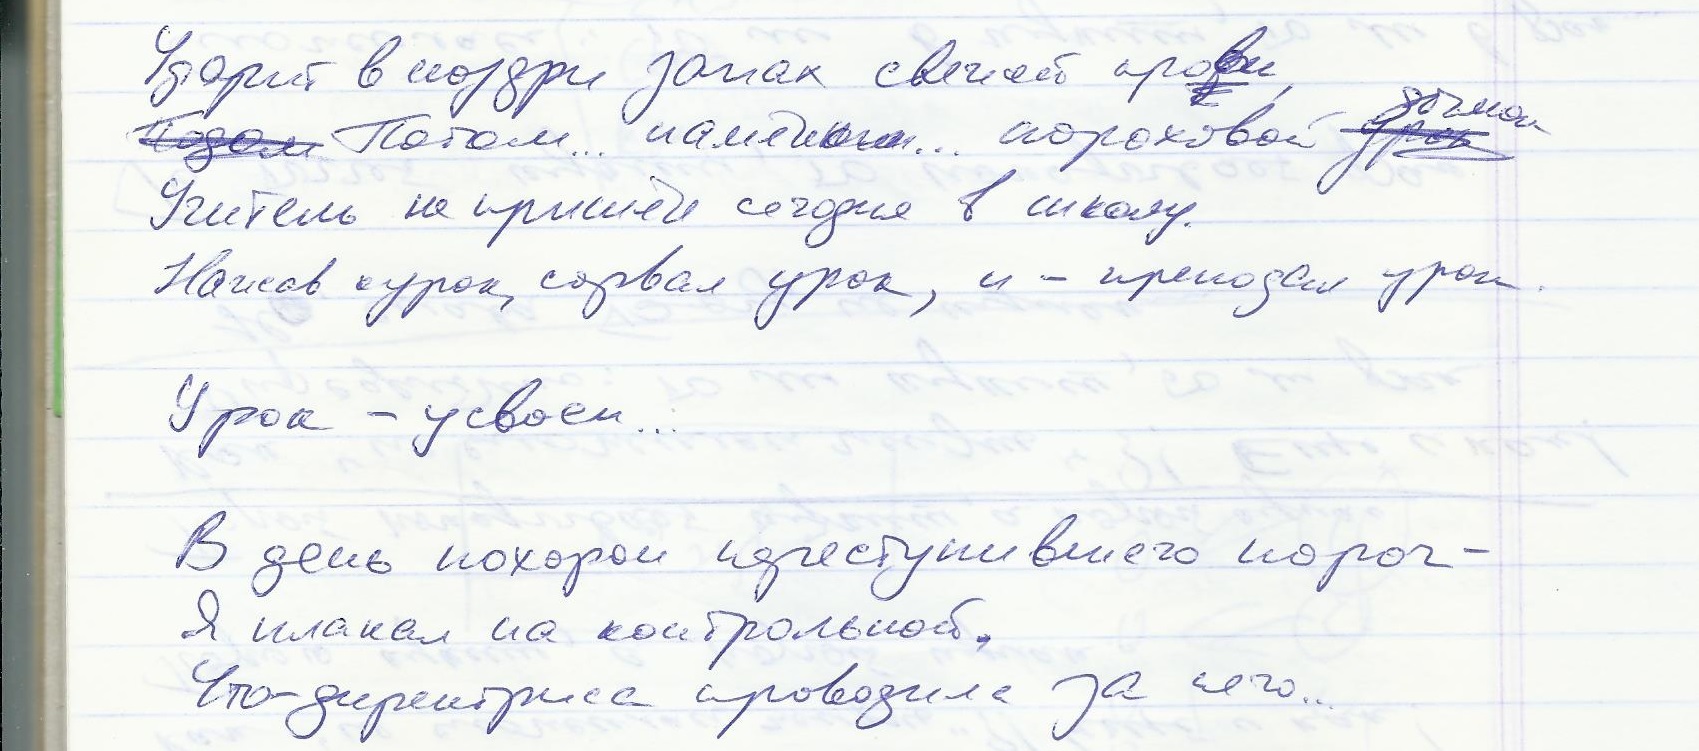 Ударит в ноздри запах свечей крови,
Потом... пометил... пороховой дымок
Учитель не пришёл сегодня в школу.
Нажав курок, сорвал урок, и - преподал урок.
Урок - усвоен...
В день похорон преступившего порог -
Я плакал на контрольной,
Что-директриса проводила за него...